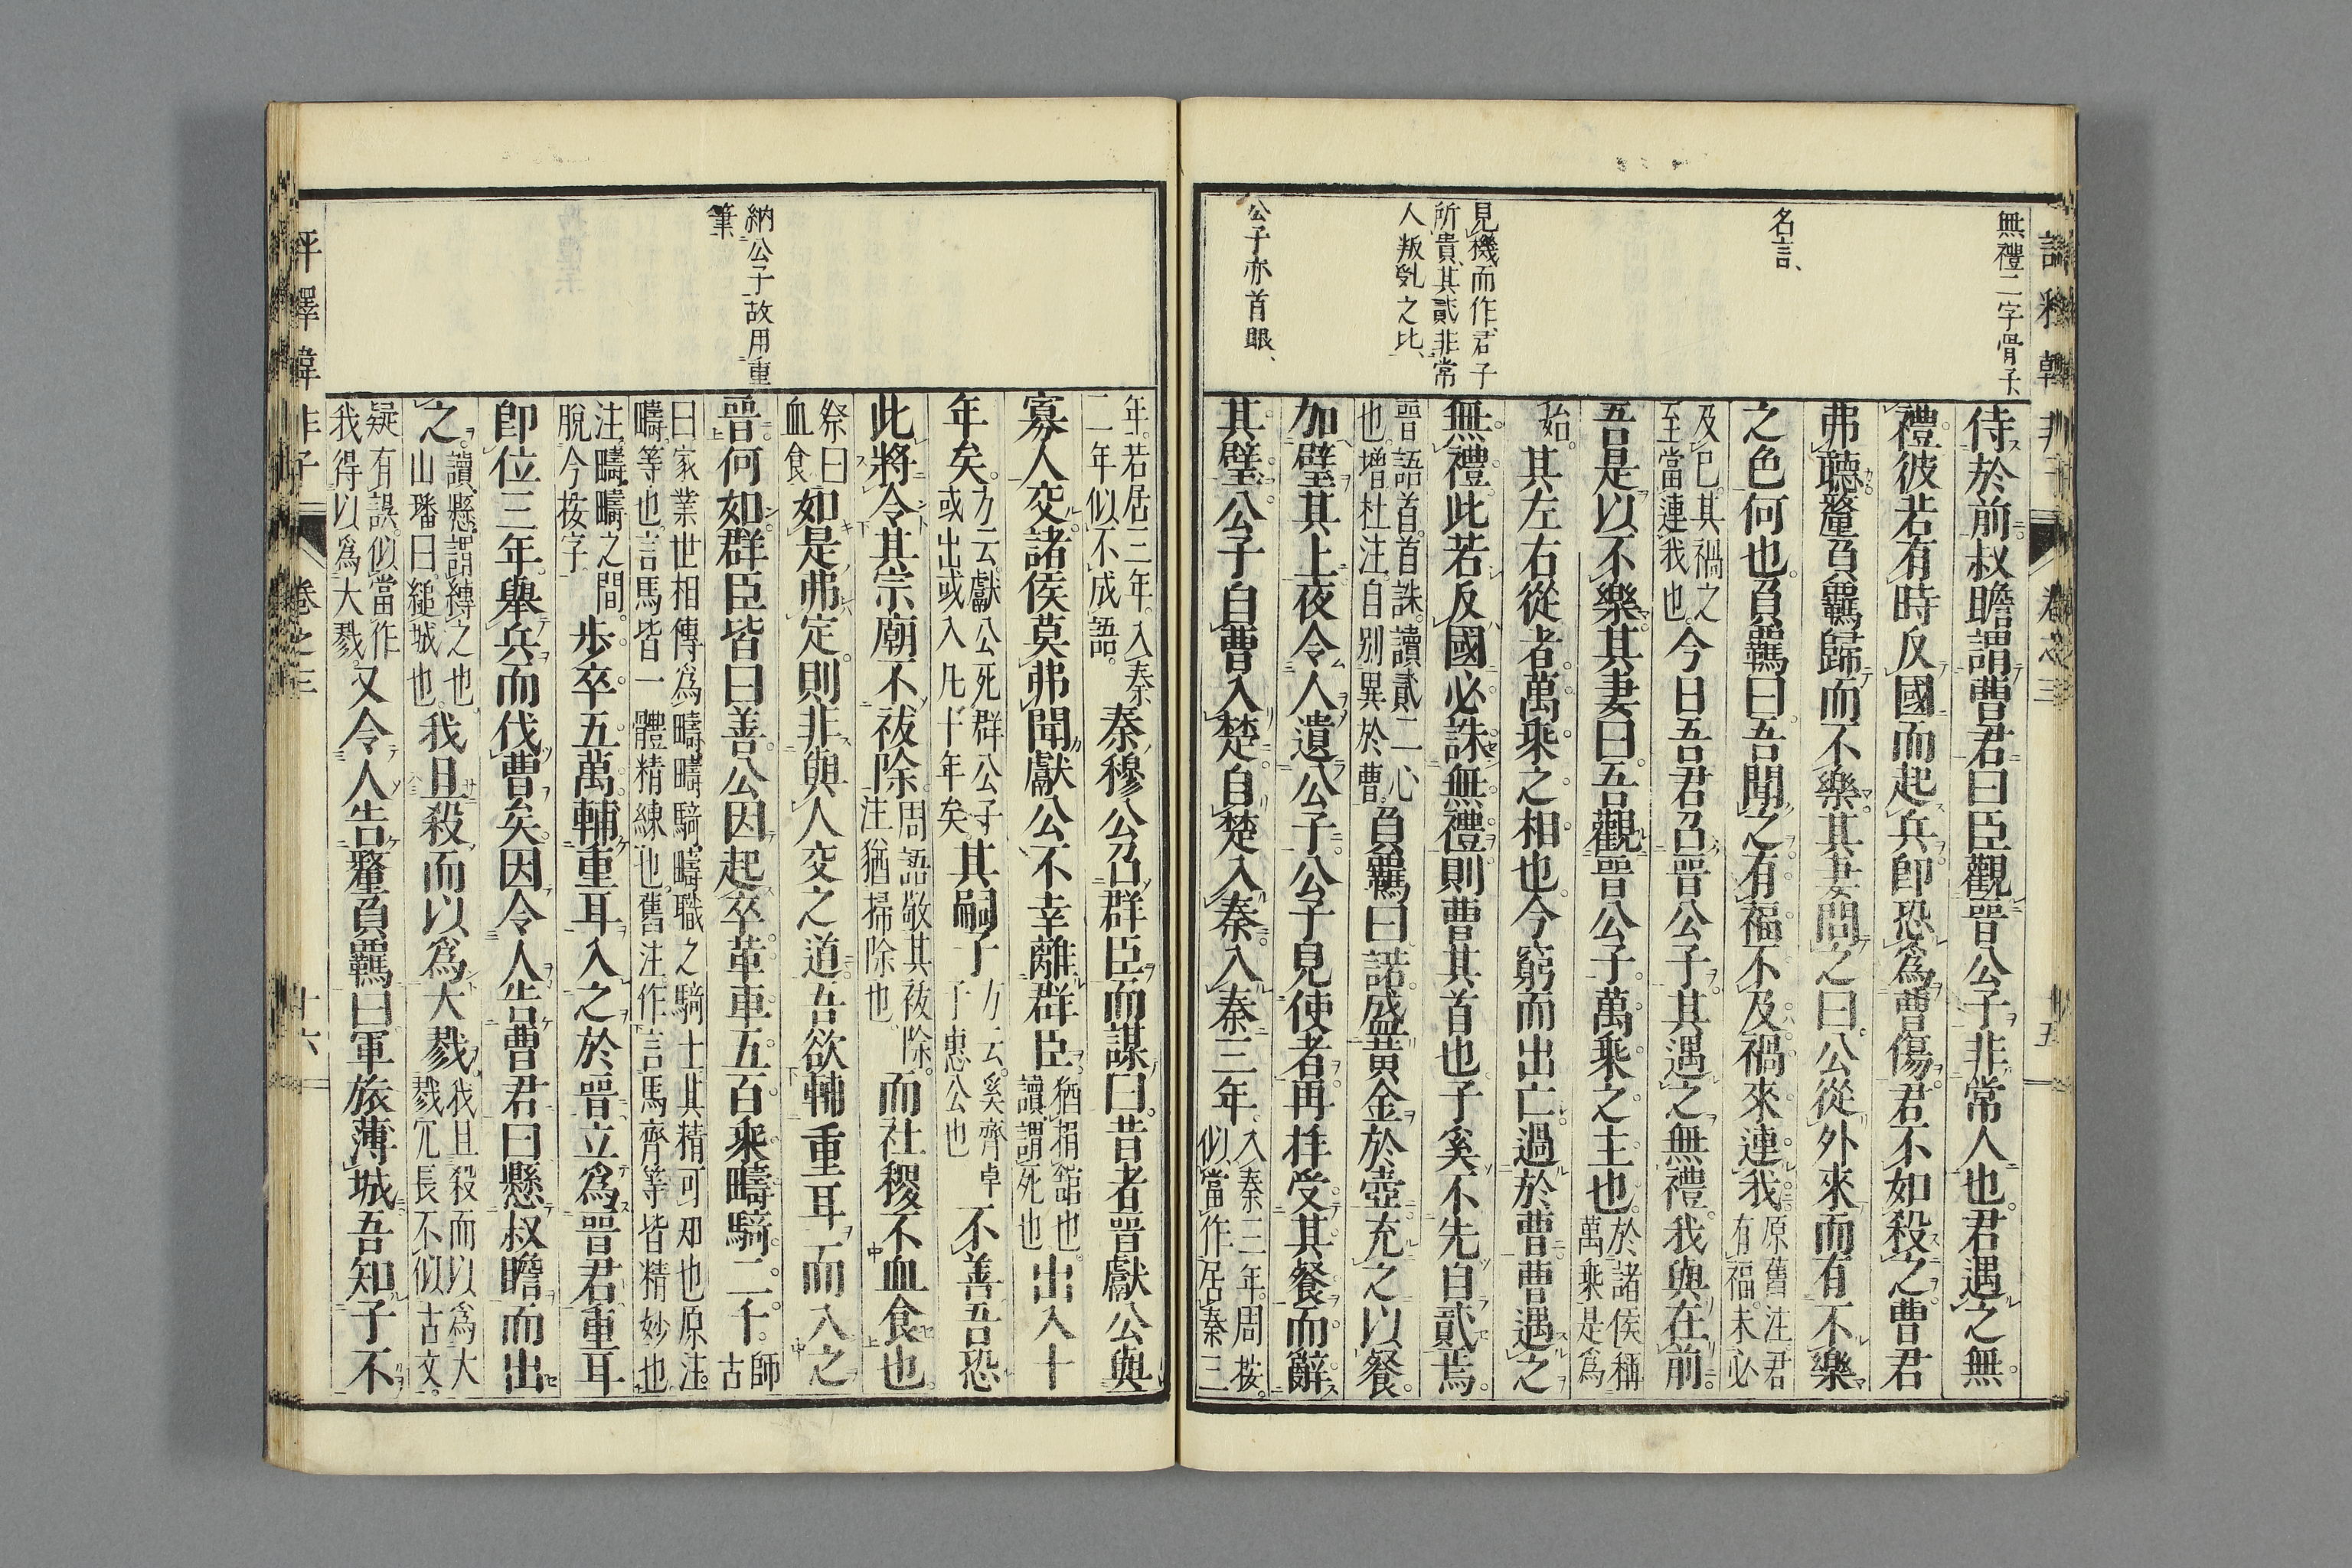 無禮二字骨子
名言、
見機而作、君子
所貴、其貳非常
人叛乱之比、
公子亦首眼、
侍於前叔瞻謂曹君曰臣觀晉公子非常人也君遇之無
禮彼若有時反國而起兵卽恐爲曹傷君不如殺之曹君
弗聽釐負羈歸而不樂其妻問之曰公從外來而有不樂
之色何也負羈曰吾聞之有福不及禍來連我
原舊注君
有福未必
及已其禍之
至當連我也
今日吾君召晉公子其遇之無禮我與在前
吾是以不樂其妻曰吾觀晉公子萬乘之主也
於諸侯稱
萬乘是爲
始
其左右從者萬乘之相也今窮而出亡過於曹曹遇之
無禮此若反國必誅無禮則曹其首也子奚不先自貳焉
晉語首首誅讀貳二心
也增杜注自別異於曹
負羈曰諾盛黃金於壺充之以餐
加璧其上夜令人遺公子公子見使者再拜受其餐而辭
其璧公子自曹入楚自楚入秦入秦三年
入秦三年周按
似當作居秦三
納公子故用重
筆
年若居三年入秦
二年似不成語
秦穆公召群臣而謀曰昔者晉獻公與
寡人交諸侯莫弗聞獻公不幸離群臣
猶捐舘也
讀謂死也
出入十
年矣
方云獻公死群公子
或出或入凡十年矣
其嗣子
方云奚齊卓
子惠公也
不善吾恐
此將令其宗廟不祓除
周語敬其祓除
注猶掃除也
而社稷不血食也
祭曰
血食
如是弗定則非與人交之道吾欲輔重耳而入之
晉何如群臣皆曰善公因起卒革車五百乘疇騎二千
師古
曰家業世相傳爲疇疇騎疇職之騎士其精可知也原注
疇等也言馬皆一體精練也舊注作言馬齊等皆精妙也
注疇疇之間
脫今按字
步卒五萬輔重耳入之於晉立爲晉君重耳
卽位三年舉兵而伐曹矣因令人告曹君曰懸叔瞻而出
之
讀懸謂縛之也
山璠曰縋城也
我且殺而以爲大戮
我且殺而以爲大
戮冗長不似古文
疑有誤似當作
我得以爲大戮
又令人告釐負羈曰軍旅薄城吾知子不
評釋韓非子
卷之三
十六